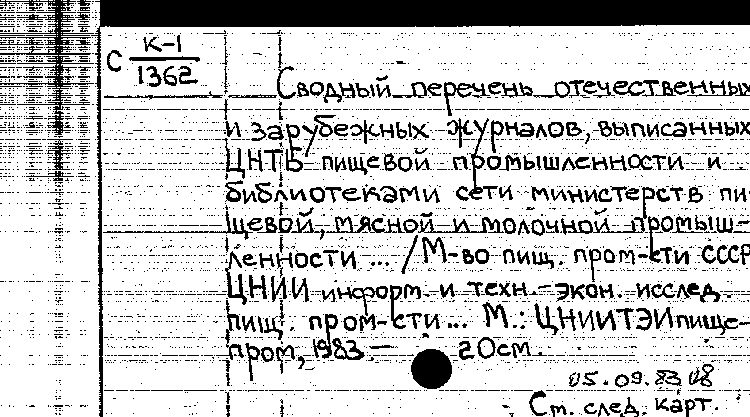 С К-1
1362
Сводный перечень отечественных
и зарубежных журналов, выписанных
ЦНТБ пищевой промышленности и
библиотеками сети министерств пи-
щевой, мясной и молочной промыш-
ленности ... / М-во пищ. пром-сти СССР
ЦНИИ информ. и техн.-экон. исслед.
пищ. пром-сти ... М.: ЦНИИТЭИпище-
пром, 1983. — 20см.
05.09.83 08
См. след. карт.